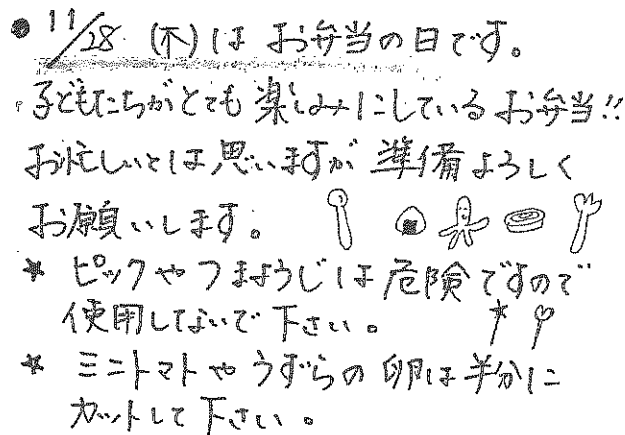 ● 11/28 (木)は お弁当の日です。
子どもたちがとても楽しみにしているお弁当!!
お忙しいとは思いますが 準備よろしく
お願いします。
★ ピックやつまようじは危険ですので
使用しないで下さい。
★ ミニトマトやうずらの卵は半分に
カットして下さい。